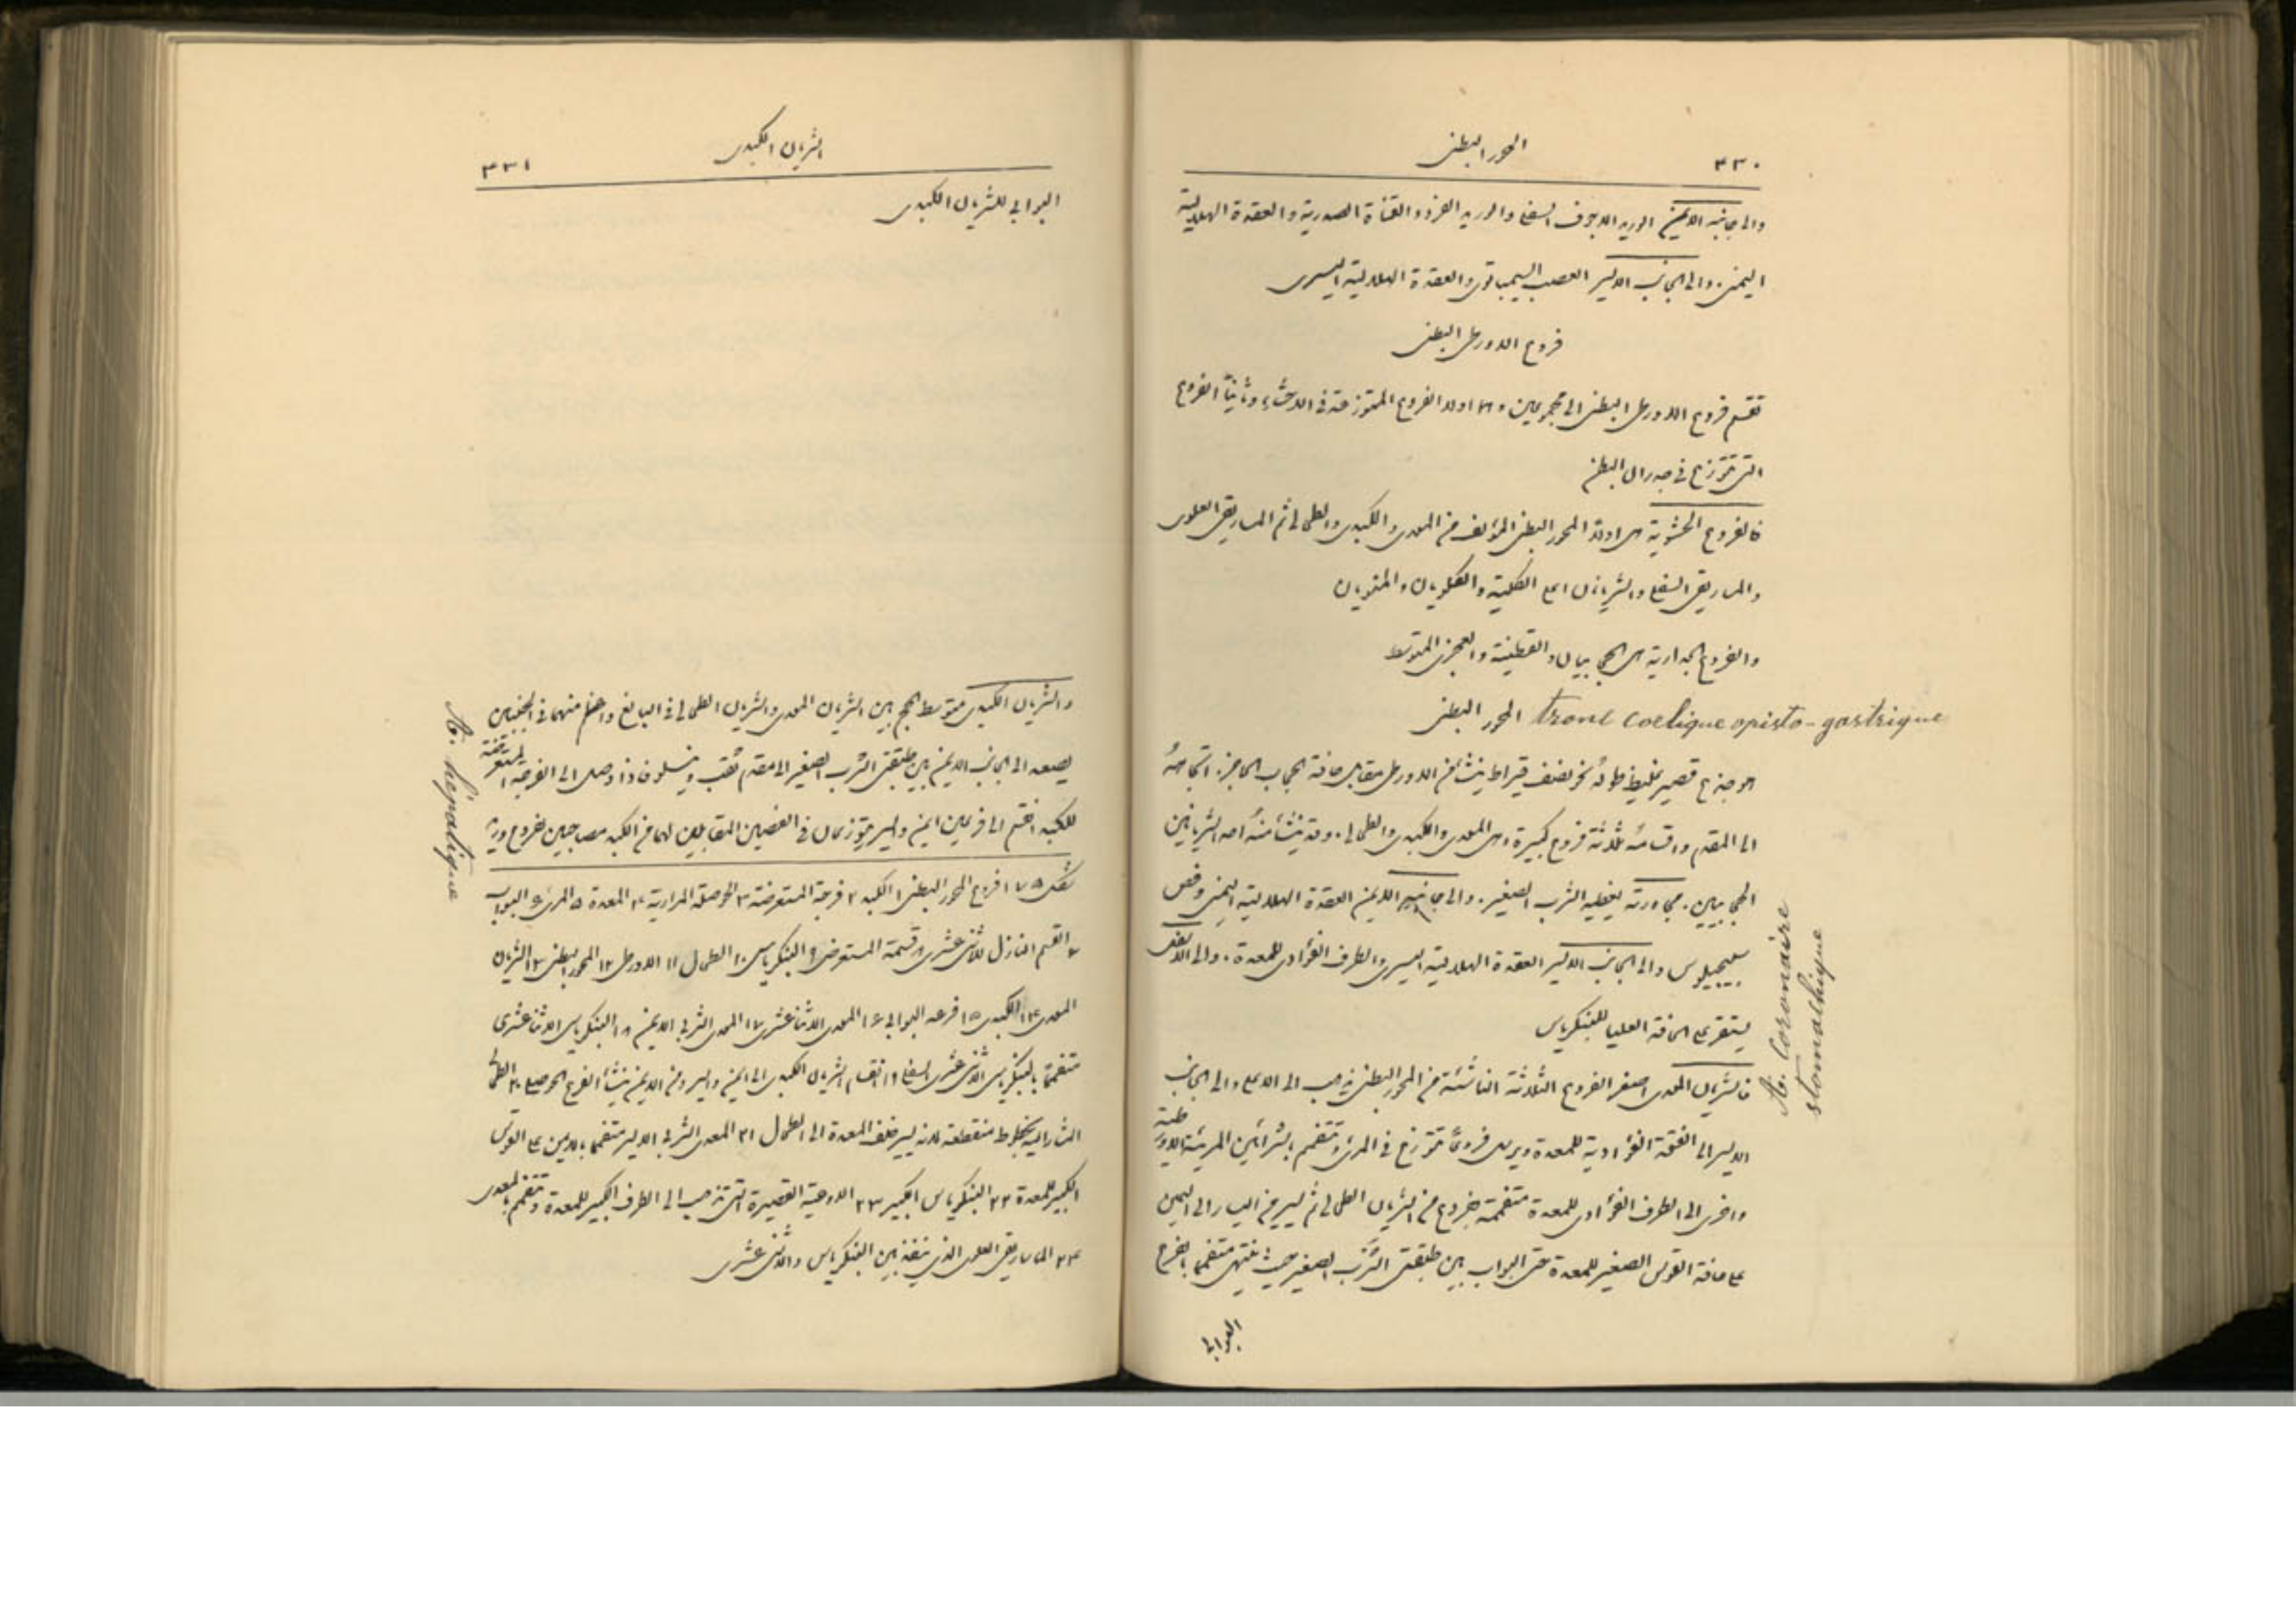 ٣٣٠ المحور البطنى
والى جانبه الايمن الوريد الاجوف السفلى والوريد الفرد والقناة الصدرية والعقدة الهلالية
اليمنى. والى الجانب الايسر العصب السيمباتوى والعقدة الهلالية اليسرى
فروع الاورطى البطنى
تقسم فروع الاورطى البطنى الى مجموعين وهما اولا الفروع المتوزعة فى الاحشاء وثانياً الفروع
التى تتوزع فى جدران البطن
فالفروع الحشوية هى اولا المحور البطنى المؤلف من المعدى والكبدى والطحالى ثم الماساريقى العلوى
والماساريقى السفلى والشريانان اعلى الكلية والكلويان والمنويان
والفروع الجدارية هى الحجابيان والقطنية والعجزى المتوسط
المحور البطنى tronc coelique opisto-gastrique
هو جذع قصير غليظ طوله نحو نصف قيراط ينشأ من الاورطى مقابل حافة الحجاب الحاجز. اتجاهه
الى المقدم واقسامه ثلاثة فروع كبيرة وهى المعدى والكبدى والطحالى. وقد ينشأ منه احد الشريانين
الحجابيين. مجاورته يغطيه الثرب الصغير. والى جانبه الايمن العقدة الهلالية اليمنى وفص
سبيجيليوس والى الجانب الايسر العقدة الهلالية اليسرى والطرف الفؤادى للمعدة. والى الاسفل
يستقر على الحافة العليا للبنكرياس
A. Coronaire
stomachique
فالشريان المعدى اصغر الفروع الثلاثة الناشئة من المحور البطنى يذهب الى الاعلى والى الجانب
الايسر الى الفتحة الفؤادية للمعدة ويرسل فروعاً تتوزع فى المرئ وتتفمم بالشرائين المريئية الاورطية
واخرى الى الطرف الفؤادى للمعدة متفممة بفروع من الشريان الطحالى ثم يسير من اليسار الى اليمين
على حافة القوس الصغير للمعدة حتى البواب بين طبقتى الثرب الصغير حيث ينتهى متفمما بالفرع
البوابى
الشريان الكبدى ٣٣١
البوابى للشريان الكبدى
والشريان الكبدى متوسط الحجم بين الشريان المعدى والشريان الطحالى فى البالغ واعظم منهما فى الجنين
يصعد الى الجانب الايمن بين طبقتى الثرب الصغير الى مقدم ثقب وينسلو فاذا وصل الى الفرجة المستعرضة
للكبد انقسم الى فرعين ايمن وايسر يتوزعان فى الفصين المقابلين لهما من الكبد مصاحبين لفروع وريد
A. hépatique
شكل ١٧٥ فروع المحور البطنى ١ الكبد ٢ فرجة المستعرضة ٣ الحوصلة المرارية ٤ المعدة ٥ المرئ ٦ البواب
٧ القسم النازل للاثنى عشرى ٨ قسمة المستعرض ٩ البنكرياس ١٠ الطحال ١١ الاورطى ١٢ المحور البطنى ١٣ الشريان
المعدى ١٤ الكبدى ١٥ فرعه البوابى ١٦ المعدى الاثناعشرى ١٧ المعدى الثربى الايمن ١٨ البنكرياسى الاثناعشرى
متفمما بالبنكرياسى الاثنى عشرى السفلى ١٩ انقسام الشريان الكبدى الى ايمن وايسر ومن الايمن ينشأ الفرع الحوصلى ٢٠ الطحالى
المشار اليه بخطوط منقطعة لانه يسير خلف المعدة الى الطحال ٢١ المعدى الثربى الايسر متفمما بالايمن على القوس
الكبير للمعدة ٢٢ البنكرياسى الكبير ٢٣ الاوعية القصيرة التى تذهب الى الطرف الكبير للمعدة وتتفمم بالمعدى
٢٤ الماساريقى العلوى الذى ينفذ بين البنكرياس والاثنى عشرى